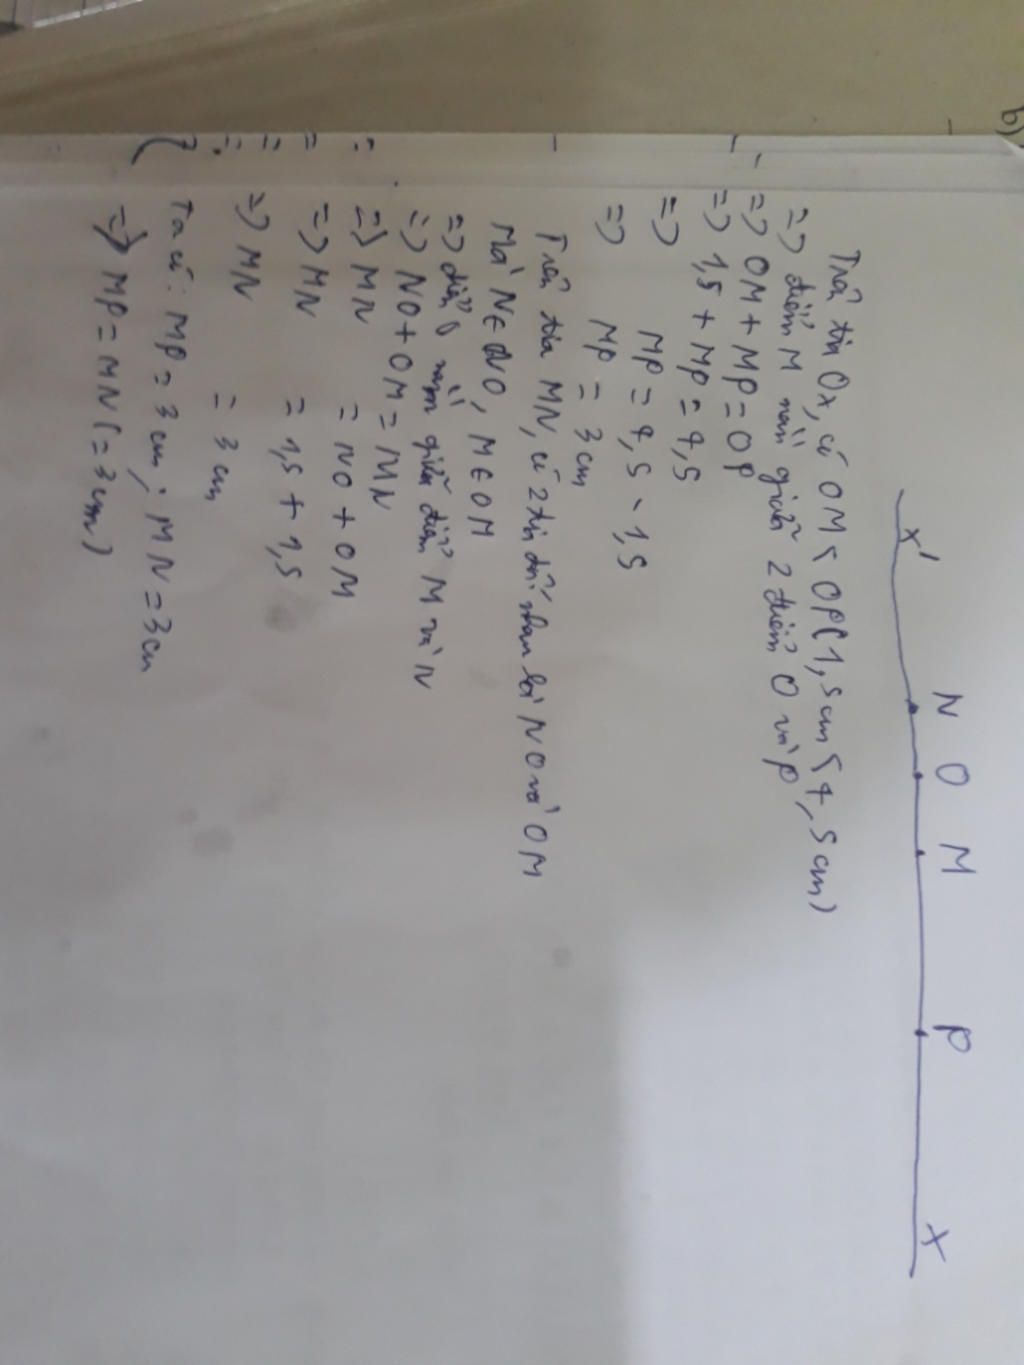 b)
x' N O M P x
Trên tia Ox, có OM < OP (1,5 cm < 4,5 cm)
=> điểm M nằm giữa 2 điểm O và P
=> OM + MP = OP
=> 1,5 + MP = 4,5
=> MP = 4,5 - 1,5
=> MP = 3 cm
Trên tia MN, có 2 tia đối nhau là NO và OM
Mà N ∈ NO, M ∈ OM
=> điểm O nằm giữa điểm M và N
=> NO + OM = MN
=> MN = NO + OM
=> MN = 1,5 + 1,5
=> MN = 3 cm
Ta có: MP = 3 cm; MN = 3 cm
=> MP = MN (= 3 cm)